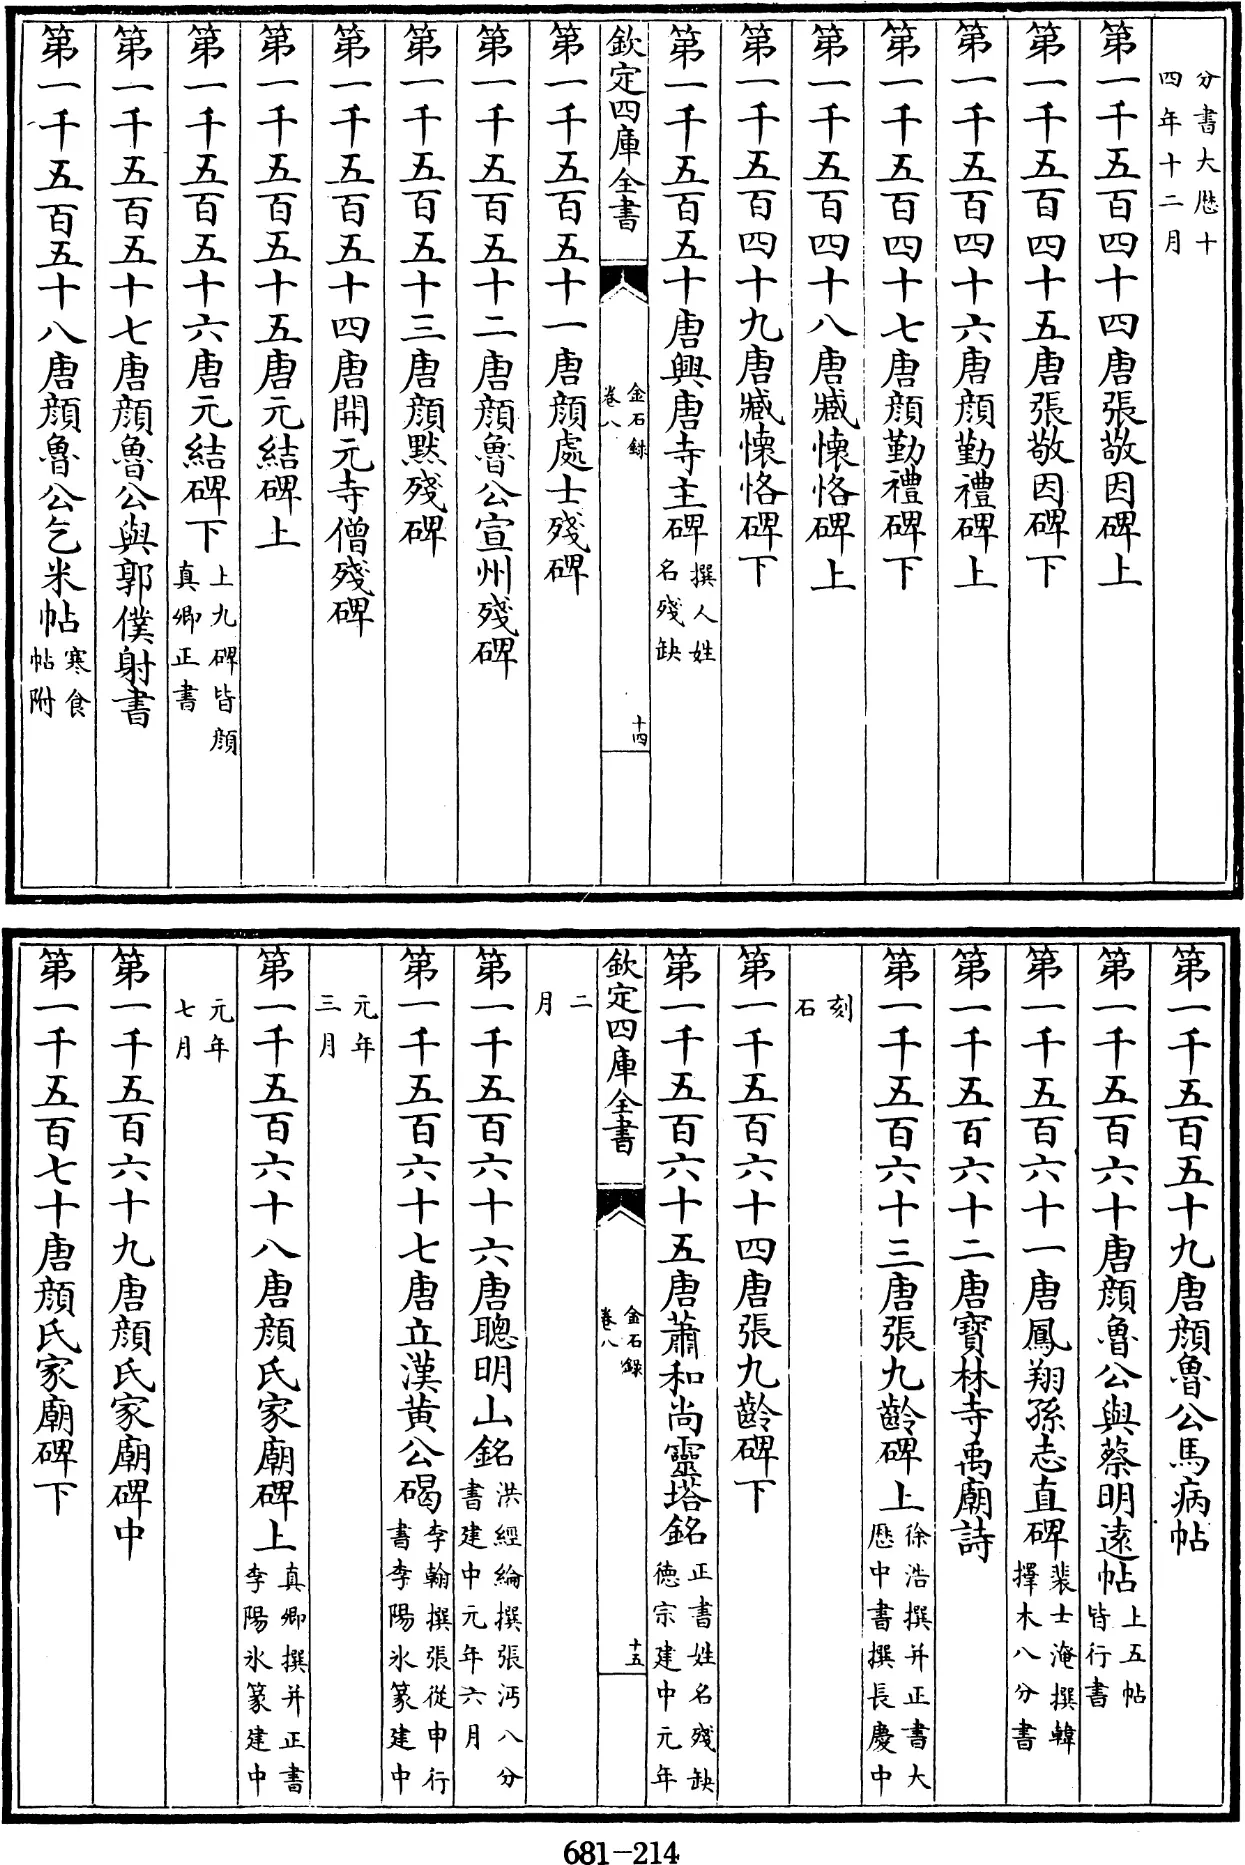 分書大歴十四年十二月
第一千五百四十四唐張敬因碑上
第一千五百四十五唐張敬因碑下
第一千五百四十六唐顔勤禮碑上
第一千五百四十七唐顔勤禮碑下
第一千五百四十八唐臧懐恪碑上
第一千五百四十九唐臧懐恪碑下
第一千五百五十唐興唐寺主碑撰人姓名殘缺
欽定四庫全書 金石録卷八 十四
第一千五百五十一唐顔處士殘碑
第一千五百五十二唐顔魯公宣州殘碑
第一千五百五十三唐顔黙殘碑
第一千五百五十四唐開元寺僧殘碑
第一千五百五十五唐元結碑上
第一千五百五十六唐元結碑下上九碑皆顔真卿正書
第一千五百五十七唐顔魯公與郭僕射書
第一千五百五十八唐顔魯公乞米帖寒食帖附
第一千五百五十九唐顔魯公馬病帖
第一千五百六十唐顔魯公與蔡明逺帖上五帖皆行書
第一千五百六十一唐鳳翔孫志直碑裴士淹撰韓擇木八分書
第一千五百六十二唐寳林寺禹廟詩
第一千五百六十三唐張九齡碑上徐浩撰并正書大歴中書撰長慶中
刻石
第一千五百六十四唐張九齡碑下
第一千五百六十五唐蕭和尚靈塔銘正書姓名殘缺徳宗建中元年
欽定四庫全書 金石録卷八 十五
二月
第一千五百六十六唐聰明山銘洪經綸撰張沔八分書建中元年六月
第一千五百六十七唐立漢黄公碣李翰撰張從申行書李陽氷篆建中
元年三月
第一千五百六十八唐顔氏家廟碑上真卿撰并正書李陽氷篆建中
元年七月
第一千五百六十九唐顔氏家廟碑中
第一千五百七十唐顔氏家廟碑下
681-214